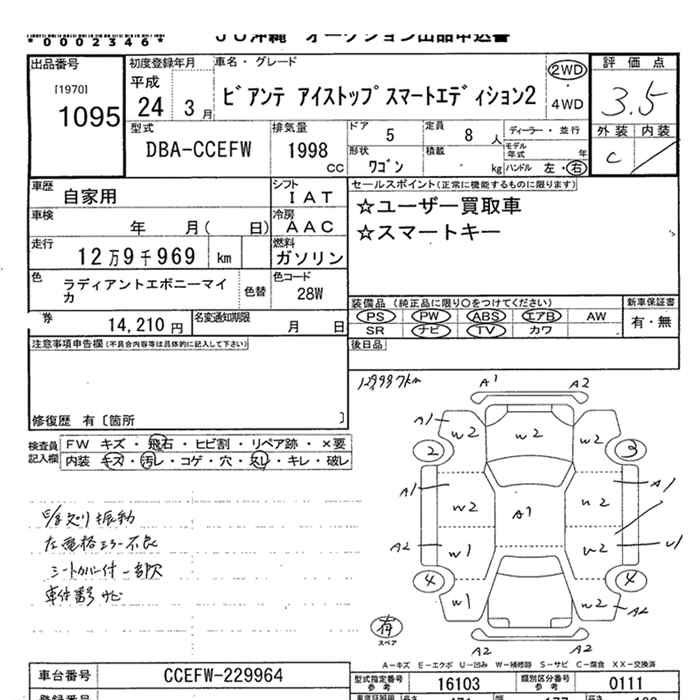 *0002346*
JU沖縄 オークション出品申込書
出品番号
[1970]
1095
初度登録年月
平成
24 3月
車名・グレード
ビアンテ アイストップスマートエディション2
2WD
4WD
評価点
3.5
外装 内装
C
型式
DBA-CCEFW
排気量
1998
CC
ドア 5
定員 8人
形状 ワゴン
積載 kg
ディーラー・並行
モデル年式 年
ハンドル 左・右
車歴 自家用
シフト IAT
車検 年 月( 日)
冷房 AAC
走行 12万9千969 km
燃料 ガソリン
色 ラディアントエボニーマイカ
色替
色コード 28W
セールスポイント(正常に機能するものに限ります)
☆ユーザー買取車
☆スマートキー
装備品(純正品に限り○をつけてください)
PS PW ABS エアB AW
SR ナビ TV カワ
新車保証書
有・無
券 14,210円
名変通知期限 月 日
後日品
注意事項申告欄(不具合内容等は具体的に記入して下さい)
修復歴 有〔箇所 〕
検査員記入欄
FW キズ・飛石・ヒビ割・リペア跡・×要
内装 キズ・汚レ・コゲ・穴・スレ・キレ・破レ
振動
左電格ミラー不良
シートカバー付 一部欠
車体番号 ナビ
129987km
A1 A2
A1 W2 W2 W2
2 3
A1 W2 A1 W2 A1
A2 W1 W2 U1
4 4
W1 W2 A2
A2 A2
有
スペア
A-キズ E-エクボ U-凹み W-補修跡 S-サビ C-腐食 XX-交換済
車台番号 CCEFW-229964
型式指定番号 参考 16103
類別区分番号 参考 0111